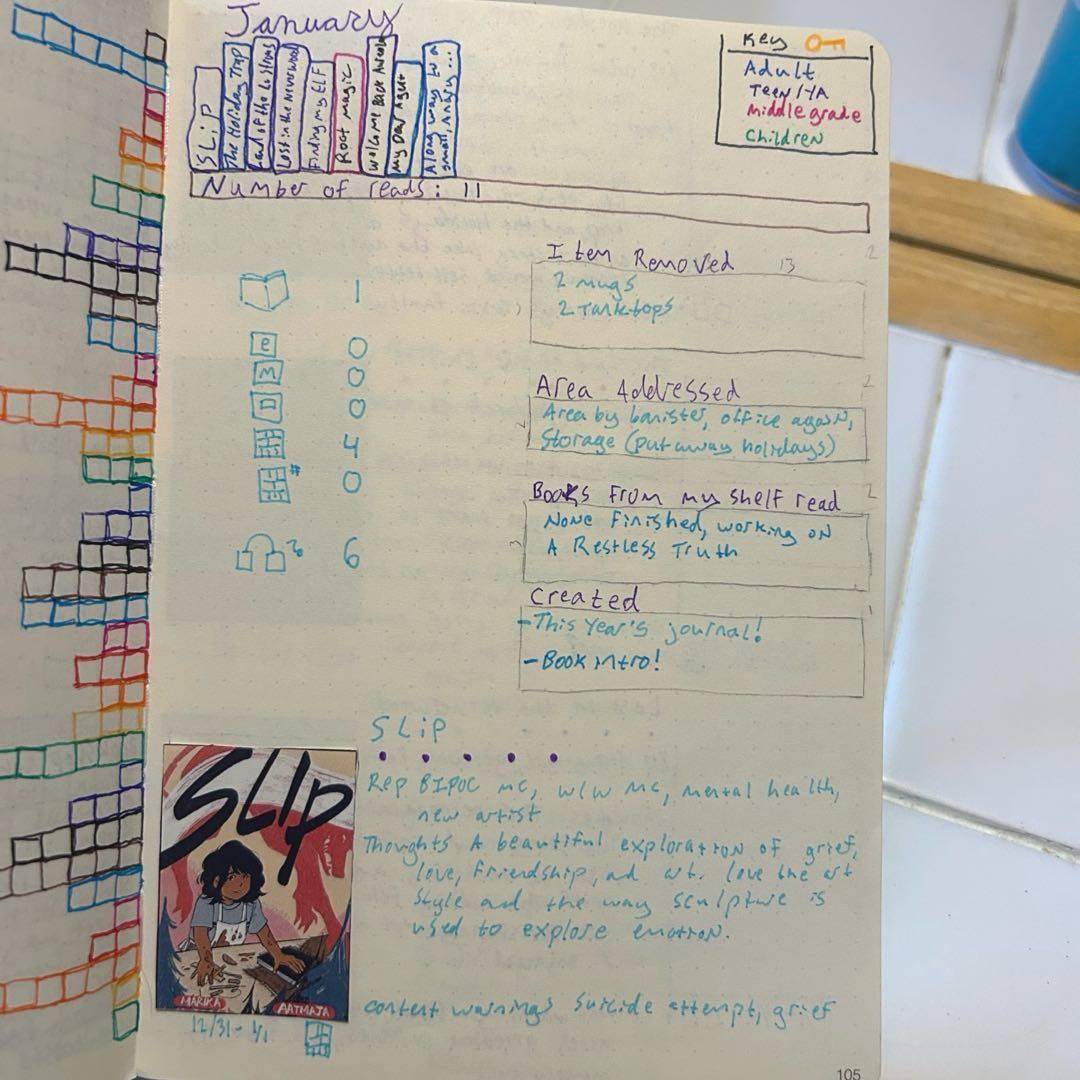 January
SLIP
The Holiday Trap
Land of the Lustrous
Lost in the Neverwood
Finding my ELF
Root magic
Welcome Back
My Dear Agent
A long way to a
small, Angry...
Key
Adult
Teen/YA
Middle grade
Children
Number of reads: 11
1
e 0
M 0
0
4
# 0
6
Item Removed 13 2
2 mugs
2 Tanktops
Area Addressed 2
Area by banister, office again,
Storage (put away holidays)
Books from my shelf read 2
None finished, working on
A Restless Truth
Created 1
- This Year's journal!
- Book intro!
SLIP
Rep BIPOC mc, w/w mc, mental health,
new artist
Thoughts A beautiful exploration of grief,
love, friendship, and art. love the art
style and the way sculpture is
used to explore emotion.
content warnings suicide attempt, grief
SLIP
MARIKA
AATMAJA
12/31 - 1/1
105